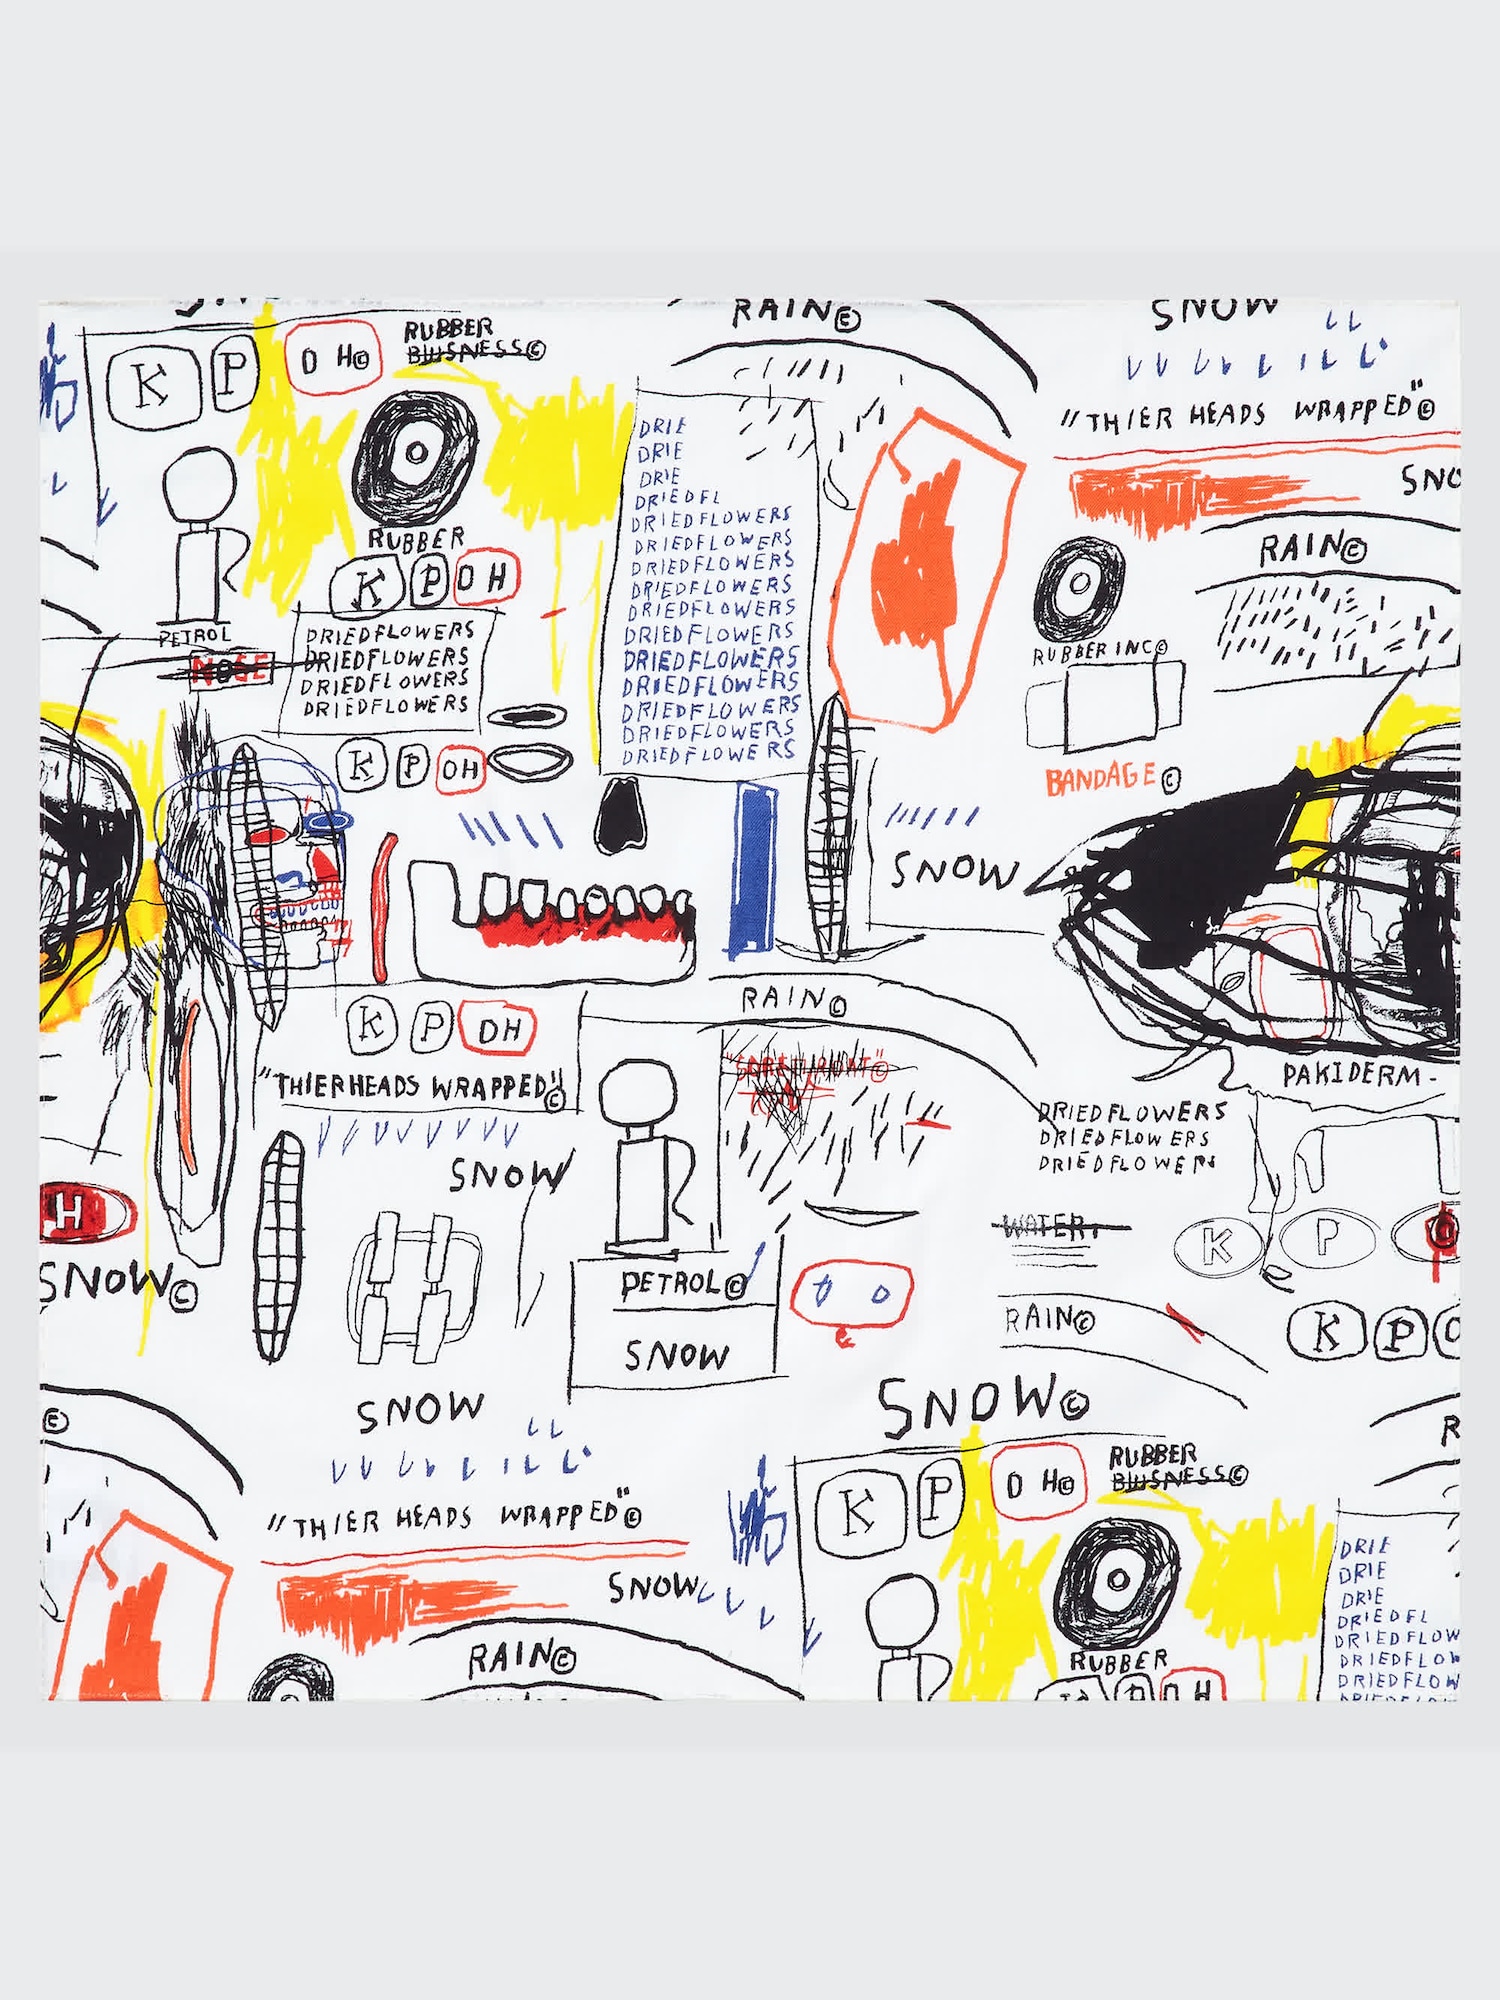 RAIN©
SNOW
K P O H©
RUBBER
BUSNESS©
"THIER HEADS WRAPPED"©
SNO
RUBBER
K P O H
PETROL
NOSE
DRIEDFLOWERS
DRIEDFLOWERS
DRIEDFLOWERS
DRIEDFLOWERS
K P OH
DRIE
DRIE
DRIE
DRIEDFL
DRIEDFLOWERS
DRIEDFLOWERS
DRIEDFLOWERS
DRIEDFLOWERS
DRIEDFLOWERS
DRIEDFLOWERS
DRIEDFLOWERS
DRIEDFLOWERS
DRIEDFLOWERS
DRIEDFLOWERS
DRIEDFLOWERS
RAIN©
RUBBER INC©
BANDAGE©
SNOW
RAIN©
K P OH
"THIERHEADS WRAPPED"©
SNOW
PAKIDERM-
DRIEDFLOWERS
DRIEDFLOWERS
DRIEDFLOWERS
H
SNOW©
PETROL©
SNOW
WATER
K P O
RAIN©
K P O
SNOW
SNOW©
©
R
"THIER HEADS WRAPPED"©
SNOW
RAIN©
K P O H©
RUBBER
BUSNESS©
RUBBER
K P O H
DRIE
DRIE
DRIE
DRIEDFL
DRIEDFLOW
DRIEDFLOW
DRIEDFLOW